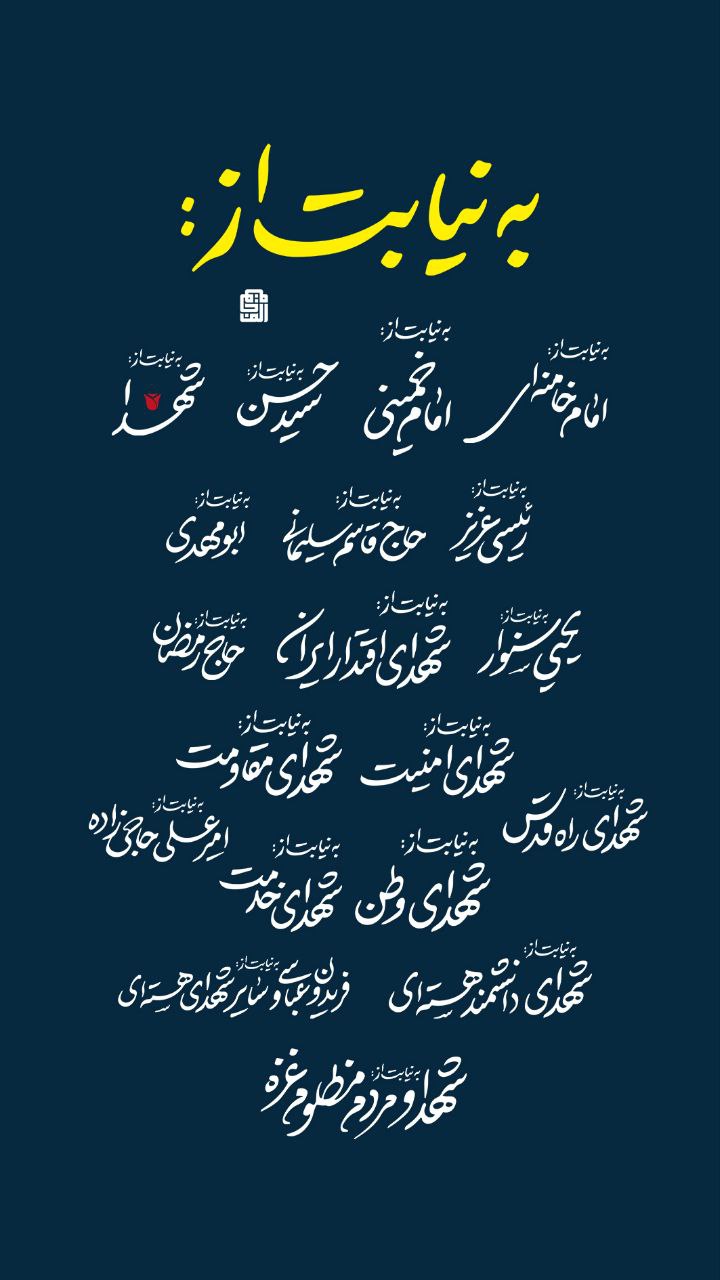 به نیابت از:
به نیابت از:
امام خامنه‌ای
به نیابت از:
امام خمینی
به نیابت از:
سید حسن
به نیابت از:
شهدا
به نیابت از:
رئیسی عزیز
به نیابت از:
حاج قاسم سلیمانی
به نیابت از:
ابومهدی
به نیابت از:
یحیی سنوار
به نیابت از:
شهدای اقتدار ایران
به نیابت از:
حاج رمضان
به نیابت از:
شهدای امنیت
به نیابت از:
شهدای مقاومت
به نیابت از:
شهدای راه قدس
به نیابت از:
امیرعلی حاجی زاده
به نیابت از:
شهدای وطن
به نیابت از:
شهدای خدمت
به نیابت از:
شهدای دانشمند هسته‌ای
به نیابت از:
فریدون عباسی و سایر شهدای هسته‌ای
به نیابت از:
شهدا و مردم مظلوم غزه